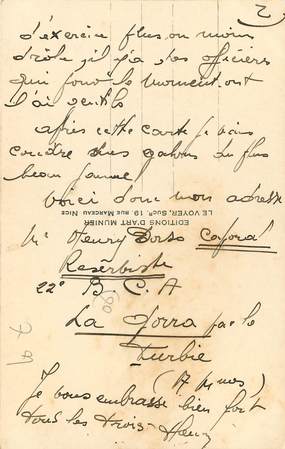 2
d'exercice plus ou moins
drôle, il y a des officiers
qui pour le moment ont
l'air gentils
après cette carte je vais
coudre des galons du plus
beau jaune
Voici donc mon adresse
EDITIONS D'ART MUNIER
LE VOYER, SUCR 19 RUE MARCEAU NICE
Mr Henry Caporal
Reserviste
22e B. C. A
La par la
Turbie
Je vous embrasse bien fort
tous les trois Henry